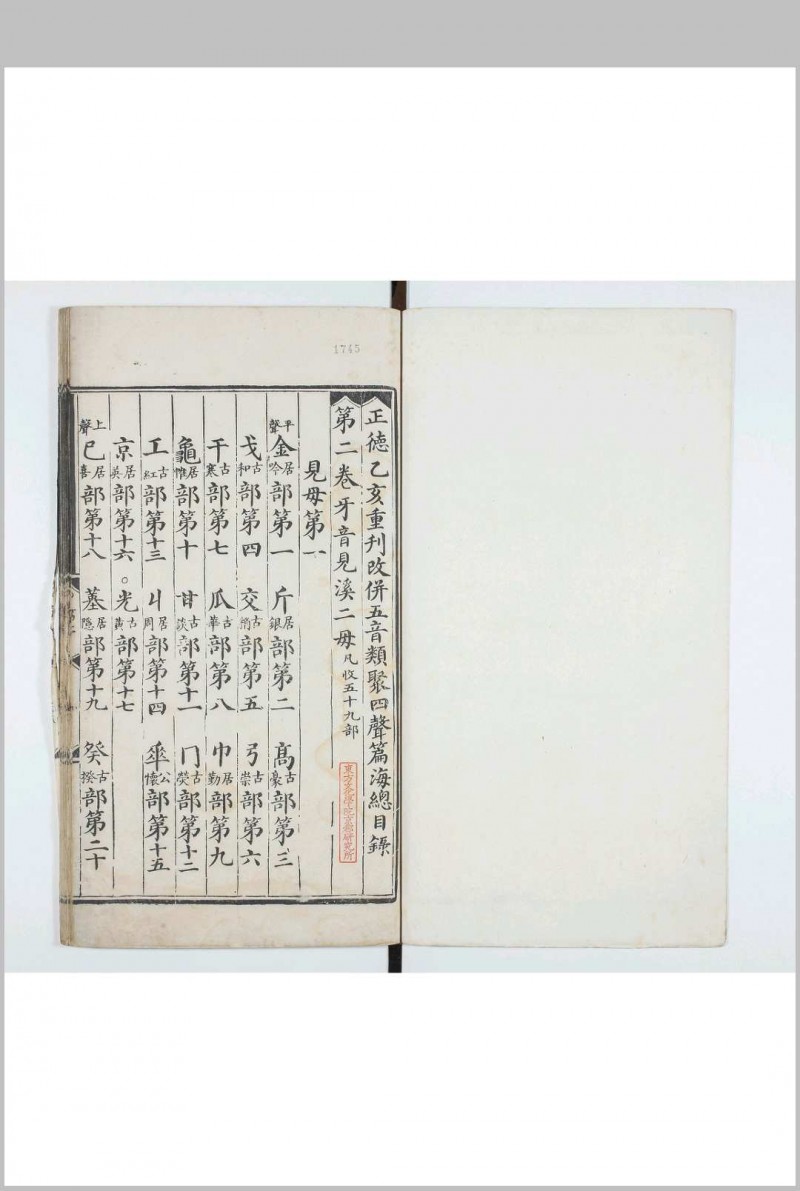 正德乙亥重刊改併五音類聚四聲篇海總目錄
第二卷牙音見溪二母凡收五十九部
見母第一
平聲金居吟部第一 斤居銀部第二 高古豪部第三
戈古和部第四 交古肴部第五 弓古崇部第六
干古寒部第七 瓜古華部第八 巾居勤部第九
龜居惟部第十 甘古談部第十一 冂古熒部第十二
工古紅部第十三 丩居周部第十四 𠦬公懷部第十五
京居英部第十六。光古黃部第十七
上聲己居喜部第十八 堇居隱部第十九 癸古揆部第二十
東方文化學院京都研究所
1745